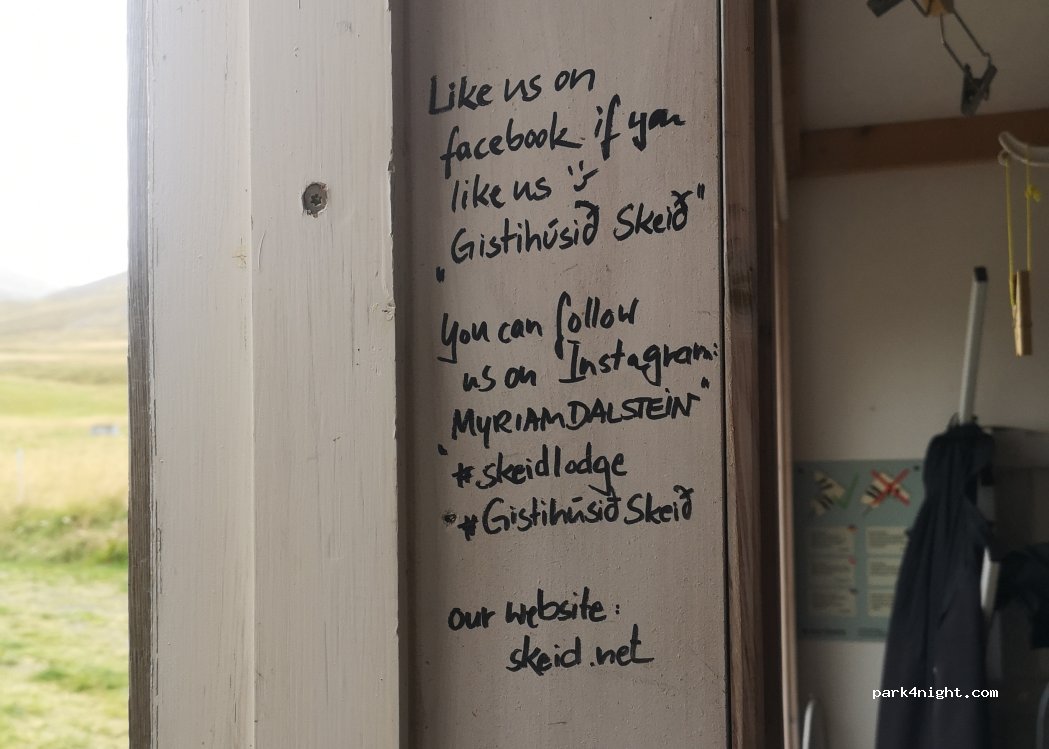 Like us on
facebook if you
like us
"Gistihúsið Skeið"
You can follow
us on Instagram:
"MYRIAMDALSTEIN"
#skeidlodge
#GistihúsiðSkeið
our website:
skeid.net
park4night.com